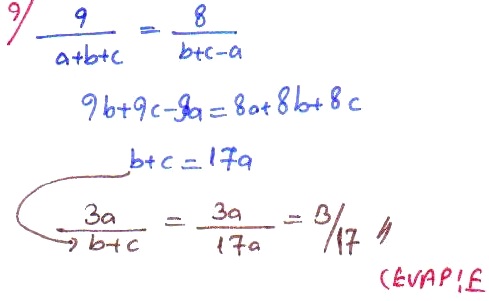 9/ 9/(a+b+c) = 8/(b+c-a)
9b+9c-9a=8a+8b+8c
b+c=17a
3a/(b+c) = 3a/17a = 3/17 //
CEVAP:E